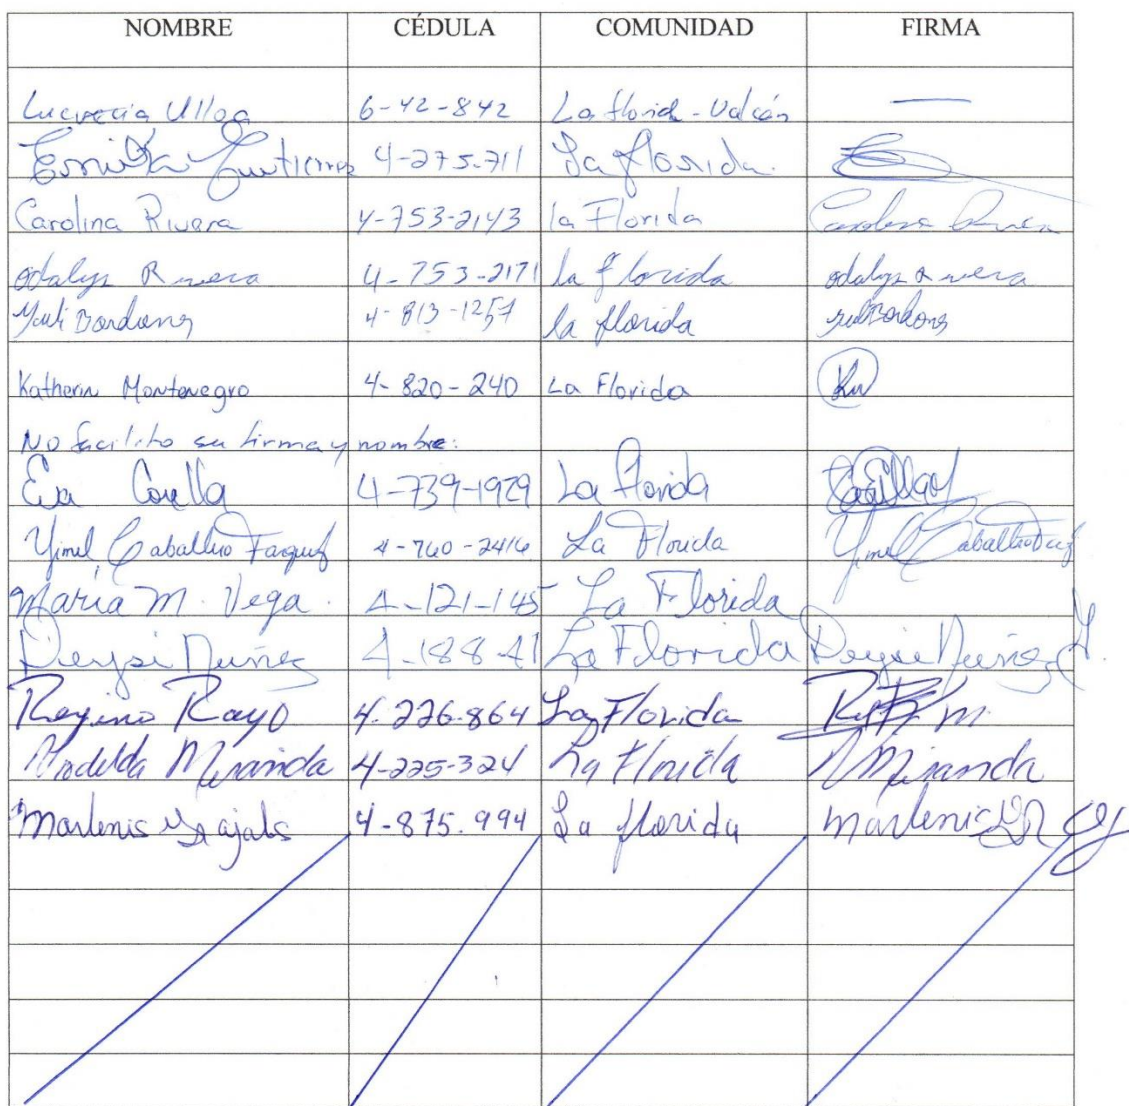 NOMBRE CÉDULA COMUNIDAD FIRMA
Lucrecia Ulloa 6-42-842 La florida - Volcán —
Emilia Gutierrez 4-275-711 La florida.
Carolina Rivera 4-753-2143 la Florida Carolina Rivera
odalys Rivera 4-753-2171 la florida odalys Rivera
Yuli 4-813-1257 la florida
Katherin Montenegro 4-820-240 La Florida KM
No facilito su firma y nombre:
Eva 4-739-1929 La florida
Yimel Caballero 4-760-2416 La Florida Yimel Caballero
Maria M. Vega. 4-121-145 La Florida
Deysi Nuñez 4-188-41 La Florida Deysi Nuñez
Regino Rayo 4-226-864 La Florida
Miranda 4-225-324 La Florida Miranda
Marlenis 4-875.994 La florida Marlenis